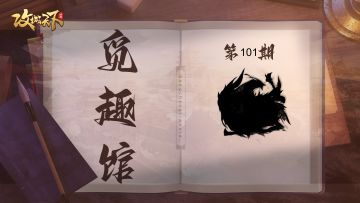 攻城天下
觅
趣
馆
第101期